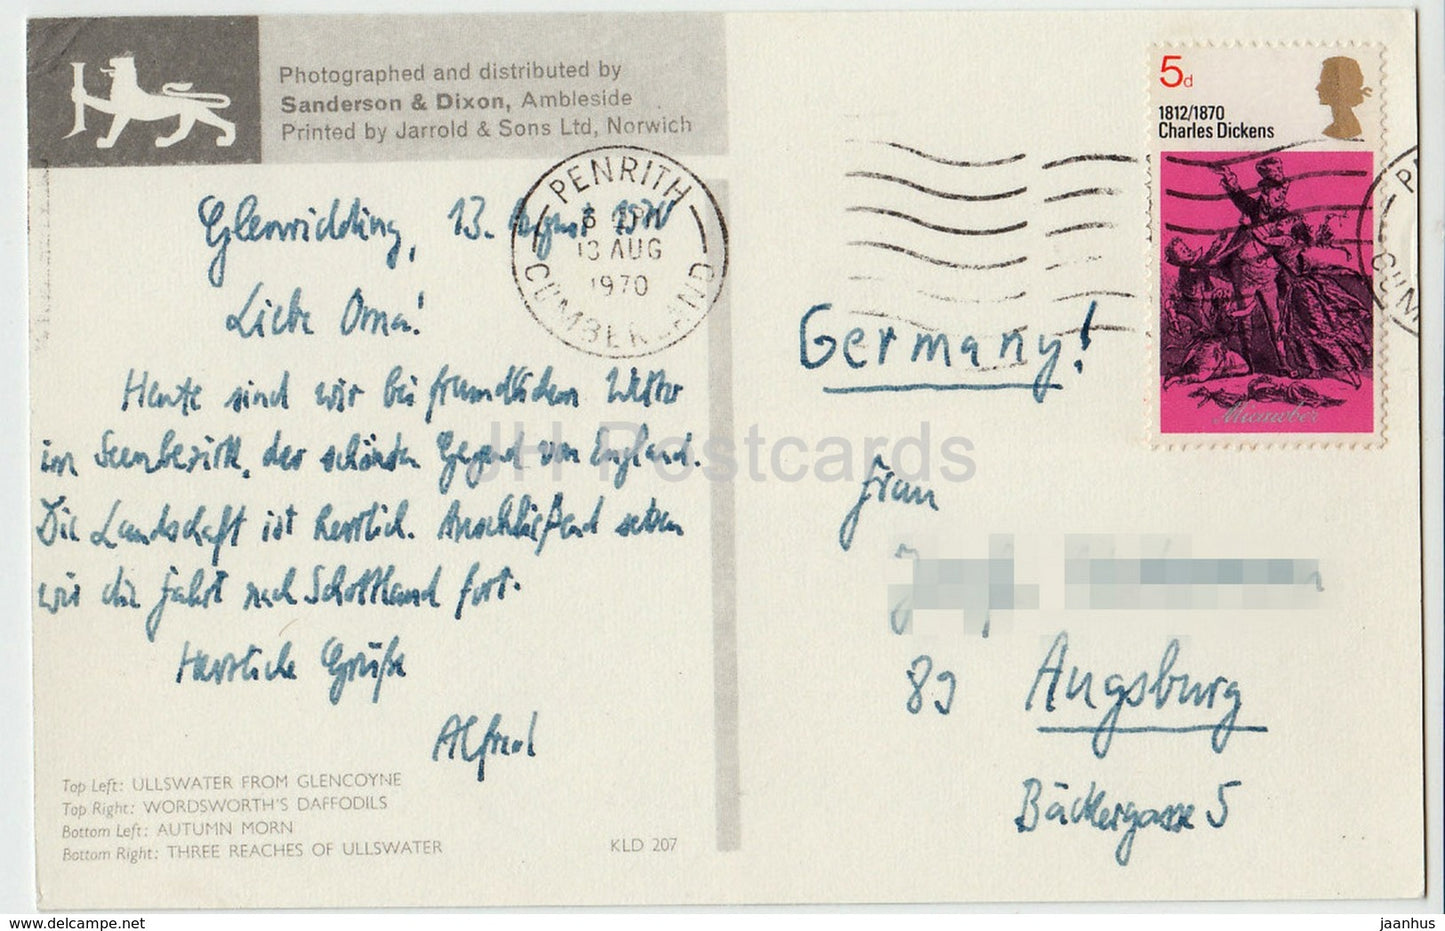 Photographed and distributed by
Sanderson & Dixon, Ambleside
Printed by Jarrold & Sons Ltd, Norwich
PENRITH
13 AUG
1970
CUMBERLAND
5d
1812/1870
Charles Dickens
Micawber
Glenridding, 13. August 1970
Liebe Oma!
Heute sind wir bei freundlichem Wetter
im Seenbezirk, der schönsten Gegend von England.
Die Landschaft ist herrlich. Anschließend setzen
wir die Fahrt nach Schottland fort.
Herzliche Grüße
Alfred
Top Left: ULLSWATER FROM GLENCOYNE
Top Right: WORDSWORTH'S DAFFODILS
Bottom Left: AUTUMN MORN
Bottom Right: THREE REACHES OF ULLSWATER
KLD 207
Germany!
Frau
89 Augsburg
Bäckergasse 5
JH Postcards
www.delcampe.net
jaanhus